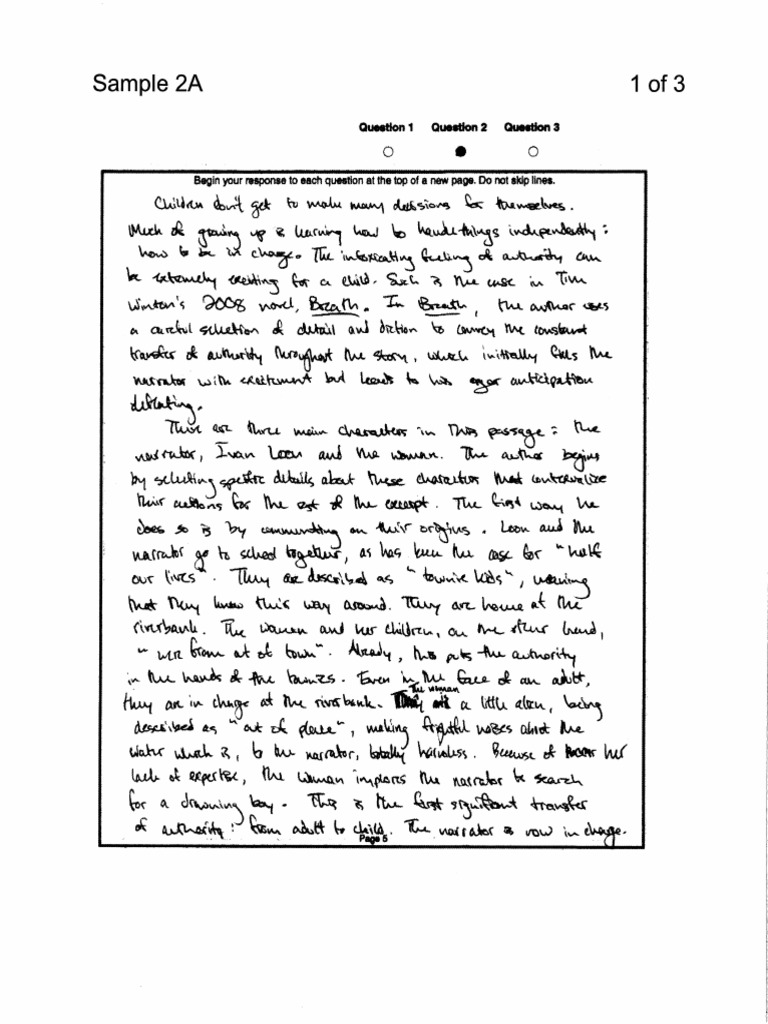 Sample 2A
1 of 3
Question 1 Question 2 Question 3
Begin your response to each question at the top of a new page. Do not skip lines.
Children don't get to make many decisions for themselves.
Much of growing up is learning how to handle things independently:
how to be in charge. The intoxicating feeling of authority can
be extremely exciting for a child. Such is the case in Tim
Winton's 2008 novel, Breath. In Breath, the author uses
a careful selection of detail and diction to convey the constant
transfer of authority throughout the story, which initially fuels the
narrator with excitement but leads to his eager anticipation
deflating.
There are three main characters in this passage: the
narrator, Ivan Loon and the woman. The author begins
by selecting specific details about these characters that contextualize
their actions for the rest of the excerpt. The first way he
does so is by commenting on their origins. Loon and the
narrator go to school together, as has been the case for "half
our lives". They are described as "townie kids", meaning
that they know their way around. They are home at the
riverbank. The woman and her children, on the other hand,
"were from out of town". Already, this puts the authority
in the hands of the townies. Even in the face of an adult,
they are in charge at the riverbank. The woman is a little alien, being
described as "out of place", making frightful noises about the
water which is, to the narrator, totally harmless. Because of her
lack of expertise, the woman implores the narrator to search
for a drowning boy. This is the first significant transfer
of authority: from adult to child. The narrator is now in charge.
Page 5